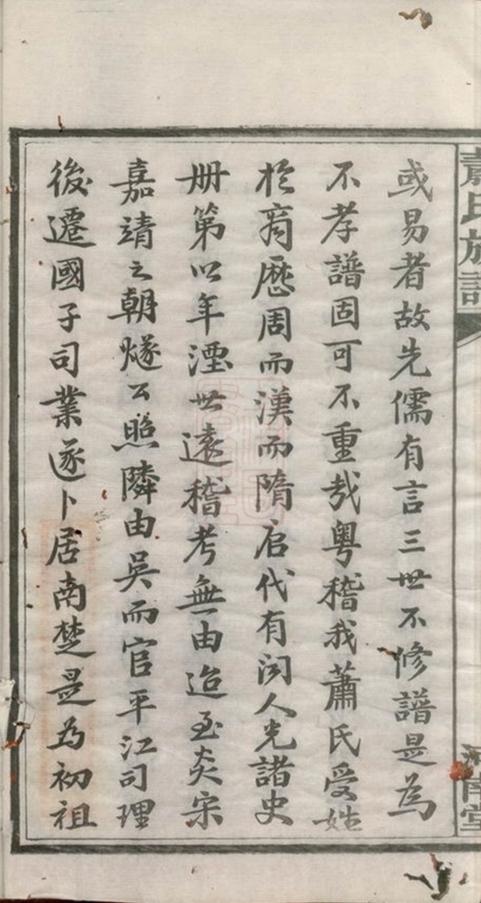 蕭氏族譜
或易者故先儒有言三世不修譜是為
不孝譜固可不重哉粵稽我蕭氏受姓
於商歷周而漢而隋唐代有闻人光諸史
册第以年湮世遠稽考無由迨至炎宋
嘉靖之朝燧公照隣由吳而官平江司理
後遷國子司業遂卜居南楚是为初祖
南堂